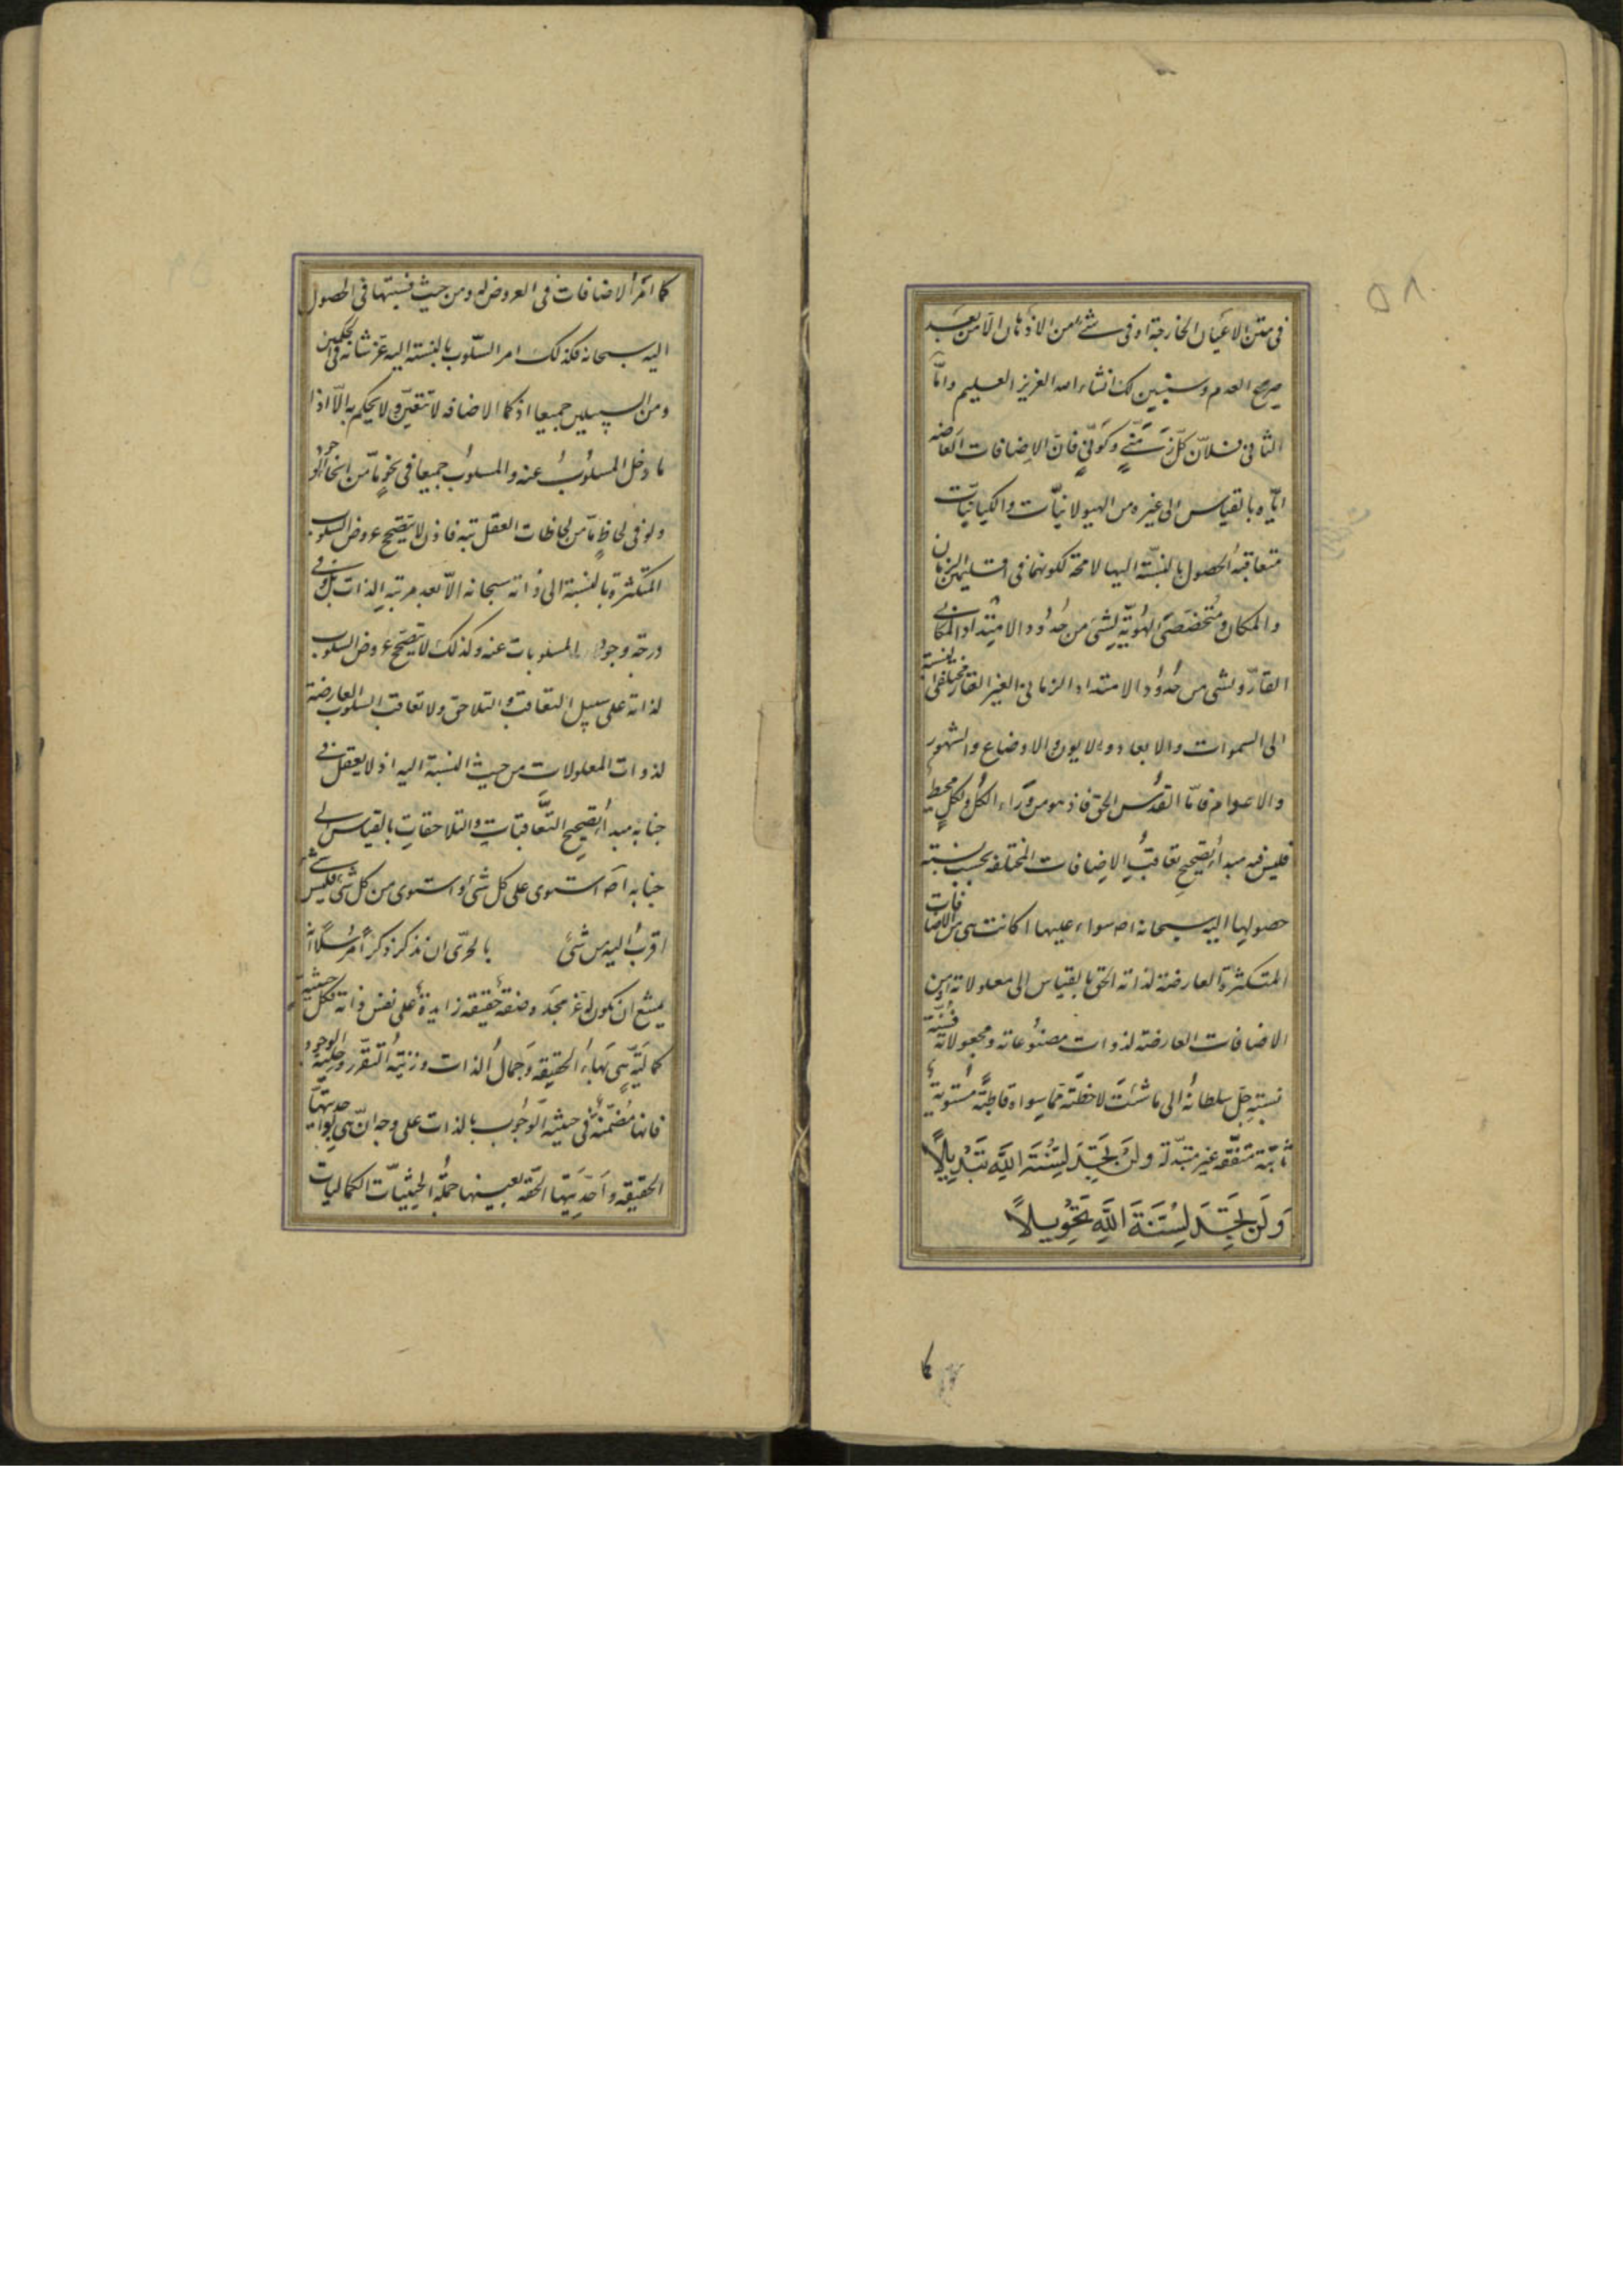 ٥٨
في متن الاعيان الخارجة او في شيء من الاذهان الا من بعد
صريح العدم وسيبين لك انشاء الله العزيز العليم واما
الثاني فلان كل زمني وكوني فان الاضافات العارضه
اياه بالقياس الى غيره من الهيولانيات والكيانيات
متعاقبة الحصول بالنسبة اليها لا محة لكونها في اقليمي الزمان
والمكان ومتخصصي الهوية بشئ من حدود الامتداد المكاني
القار وبشئ من حدود الامتداد الزماني الغير القار مختلفي النسبة
الى السموات والابعاد والايون والاوضاع والشهور
والاعوام فاما القدس الحق فاذ هو من وراء الكل وبكل محيط
فليس فيه مبدأ يصحح تعاقب الاضافات المختلفه بحسب نسبة
حصولها اليه سبحانه اصه سواء عليها اكانت هي من الاضافات
المتكثرة العارضة لذاته الحق بالقياس الى معلولاته او من
الاضافات العارضة لذوات مصنوعاته ومجعولاته
نسبته جل سلطانه الى ما شئت لاحظته مما سواه قاطبة مستوية
ثابتة متفقة غير متبدلة ولن تجد لسنة الله تبديلا
ولن تجد لسنة الله تحويلا
كما
كما امر الاضافات في العروض له ومن حيث نسبتها في الحصول
اليه سبحانه فكذلك امر السلوب بالنسبة اليه عز شانه في الحكمين
ومن السبيلين جميعا اذ كما الاضافه لا تتعين ولا يحكم به الا اذا
ما دخل المسلوب عنه والمسلوب جميعا في نحو ما من انحاء الوجود
ولو في لحاظ ما من لحاظات العقل بتة فاذن لا يتصحح عروض السلوب
المتكثرة بالنسبة الى ذاته سبحانه الا بعد مرتبة الذات بل وفي
درجة وجود المسلوبات عنه وكذلك لا يتصحح عروض السلوب
لذاته على سبيل التعاقب والتلاحق ولا تعاقب السلوب العارضة
لذوات المعلولات من حيث النسبة اليه اذ لا يعقل في
جنابه مبدأ يصحح التعاقبات والتلاحقات بالقياس الى
جنابه اصه استوى على كل شئ واستوى من كل شئ فليس شئ
اقرب اليه من شئ بالحري ان نذكر ذكرا مرسلا انه
يمتنع ان تكون له عز مجده وصفة حقيقة زايدة على نفس ذاته فكل حيثية
كمالية هي بهاء الحقيقة وجمال الذات وزينة التقرر وحلية الوجود
فانها مضمنة في حيثية الوجوب بالذات على وجه ان هي بوحديتها
الحقيقه واحديتها الحقه بعينها جملة الحيثيات الكماليات